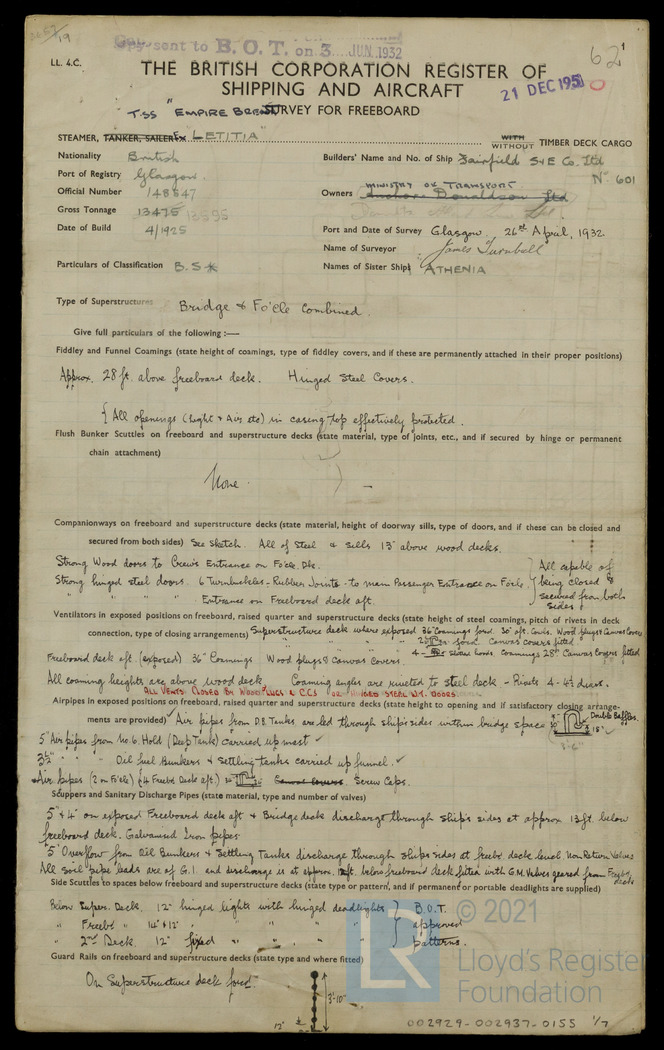 Copy sent to B.O.T. on 3 JUN 1932
LL. 4.C.
62
THE BRITISH CORPORATION REGISTER OF
SHIPPING AND AIRCRAFT
21 DEC 195
T.SS "EMPIRE BRENT"
SURVEY FOR FREEBOARD
STEAMER, TANKER, SAILER Ex "LETITIA"
WITH
WITHOUT TIMBER DECK CARGO
Nationality British
Builders' Name and No. of Ship Fairfield S & E Co. Ltd
No 601
Port of Registry Glasgow
Official Number 148847
MINISTRY OF TRANSPORT
Owners Anchor Donaldson Ltd
Gross Tonnage 13475 13595
Date of Build 4/1925
Port and Date of Survey Glasgow, 26th April, 1932
Name of Surveyor James Turnbull
Particulars of Classification B.S*
Names of Sister Ships ATHENIA
Type of Superstructures Bridge & Fo'cle Combined.
Give full particulars of the following :—
Fiddley and Funnel Coamings (state height of coamings, type of fiddley covers, and if these are permanently attached in their proper positions)
Approx. 28 ft. above freeboard deck. Hinged Steel Covers.
{ All openings (Light & Air etc) in casing top effectively protected.
Flush Bunker Scuttles on freeboard and superstructure decks (state material, type of joints, etc., and if secured by hinge or permanent
chain attachment)
None.
Companionways on freeboard and superstructure decks (state material, height of doorway sills, type of doors, and if these can be closed and
secured from both sides) See Sketch. All of Steel & Sills 15" above wood decks.
Strong Wood doors to Crew's Entrance on Fo'cle Dk.
Strong hinged steel doors. 6 Turnbuckles - Rubber Joints - to main Passenger Entrance on Fo'cle
" " " " Entrance on Freeboard deck aft.
} All capable of being closed & secured from both sides
Ventilators in exposed positions on freeboard, raised quarter and superstructure decks (state height of steel coamings, pitch of rivets in deck
connection, type of closing arrangements) Superstructure deck where exposed 36" Coamings ford. 30" aft. Wood plugs & Canvas Covers
ford Canvas covers fitted
Freeboard deck aft (exposed) 36" Coamings Wood plugs & Canvas covers. Coamings 28" Canvas covers fitted
All coaming heights are above wood deck. Coaming angles are riveted to steel deck - Rivets 4 - 4½ diars.
ALL VENTS CLOSED BY WOOD PLUGS & C.C.S OR HINGED STEEL W.T. DOORS.
Airpipes in exposed positions on freeboard, raised quarter and superstructure decks (state height to opening, and if satisfactory closing arrange-
ments are provided) Air pipes from D.B. Tanks are led through ship's sides within bridge space Double Baffles.
18"
3'-6"
5" Air pipes from No. 6. Hold (Deep Tank) carried up mast
3½" " " Oil fuel Bunkers & Settling tanks carried up funnel.
Air pipes (2 on Fo'cle) (4 Freebd Deck aft.) Canvas Covers. Screw Caps.
Scuppers and Sanitary Discharge Pipes (state material, type and number of valves)
5" & 4" on exposed Freeboard deck aft & Bridge deck discharge through ship's sides at approx 13 ft. below
freeboard deck. Galvanised Iron pipes.
5" Overflow from Oil Bunkers & Settling Tanks discharge through ships sides at freebd deck level Non Return Valves
All soil pipe leads are of G.I. and discharge is at approx. ft. below freeboard deck fitted with G.M. Valves geared from Freebd. deck
Side Scuttles to spaces below freeboard and superstructure decks (state type or pattern, and if permanent or portable deadlights are supplied)
Below Super. Deck. 12" hinged lights with hinged deadlights } B.O.T.
" Freebd " 14" & 12" " " " " } approved
" 2nd Deck. 12" fixed " " " " } patterns.
Guard Rails on freeboard and superstructure decks (state type and where fitted)
On Superstructure deck ford
3'-10"
© 2021
Lloyd's Register
Foundation
002929-002937-0155 1/7